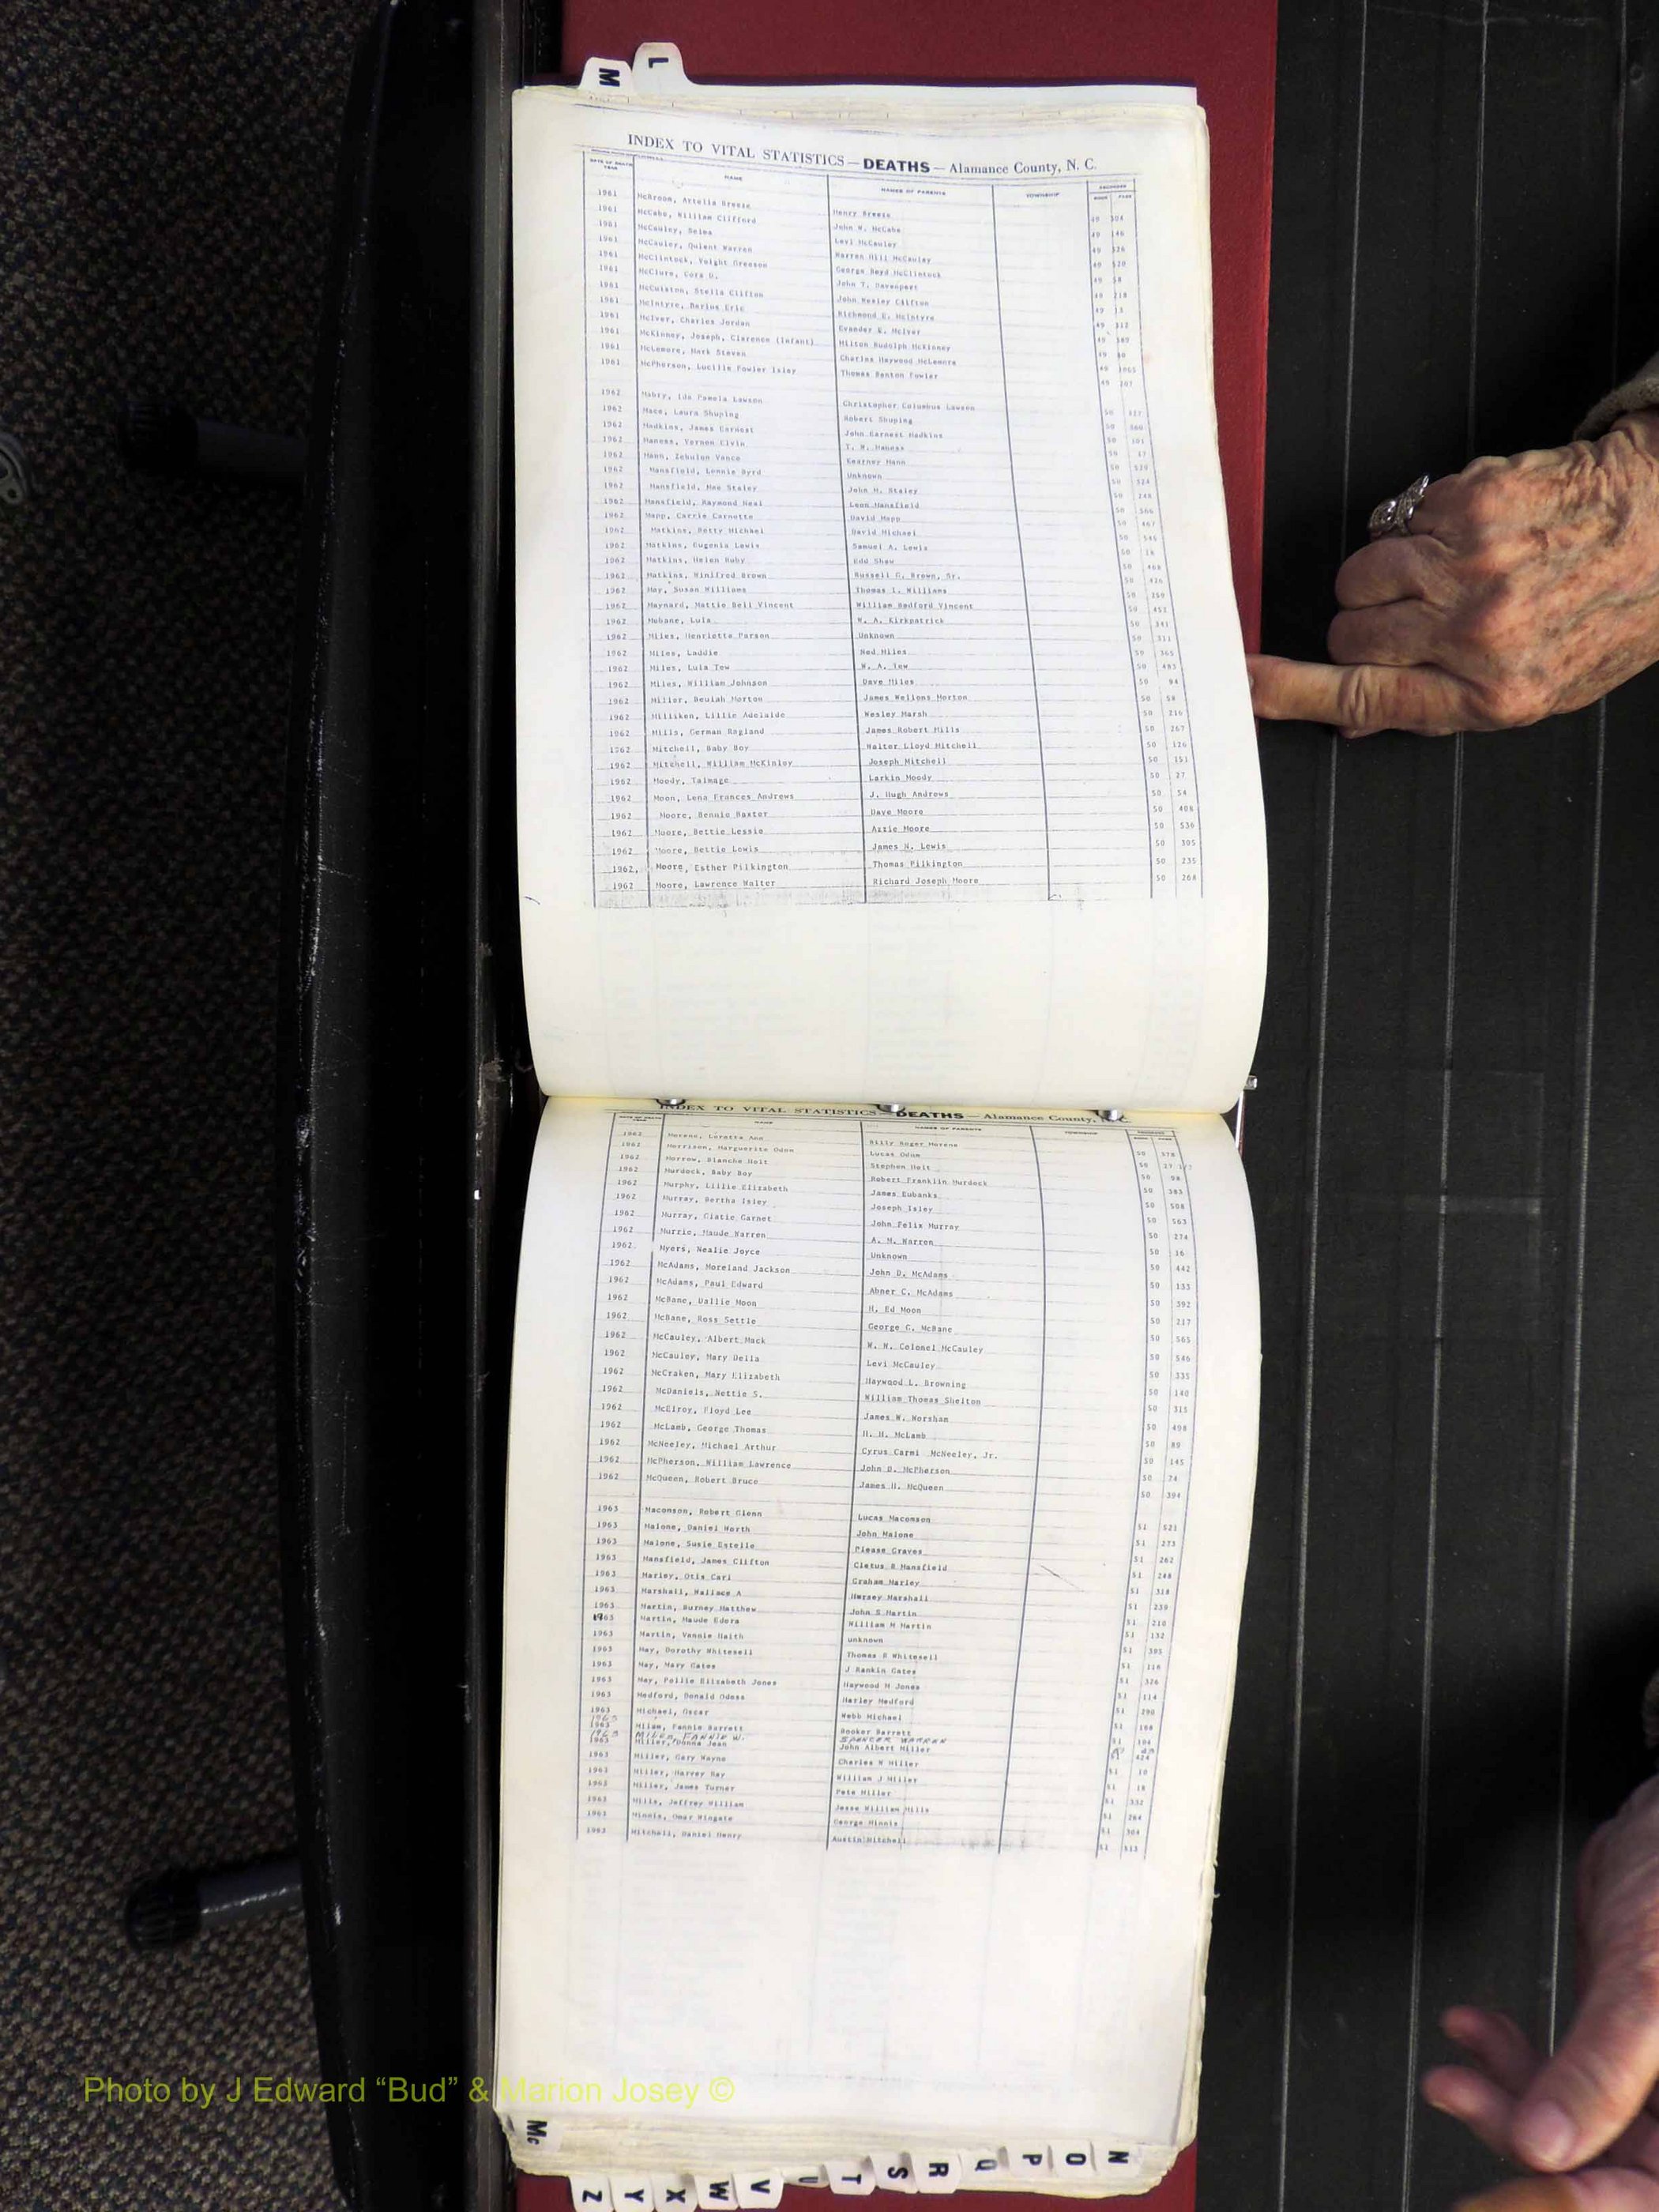 M
L
INDEX TO VITAL STATISTICS — DEATHS — Alamance County, N. C.
DATE OF DEATH YEAR NAME NAMES OF PARENTS TOWNSHIP RECORDED BOOK PAGE
1961 McBroom, Artelia Breeze Henry Breeze 49 304
1961 McCabe, William Clifford John W. McCabe 49 146
1961 McCauley, Selma Levi McCauley 49 526
1961 McCauley, Quient Warren Warren Hill McCauley 49 520
1961 McClintock, Voight Greeson George Boyd McClintock 49 58
1961 McClure, Cora D. John T. Davenport 49 218
1961 McCuiston, Stella Clifton John Wesley Clifton 49 13
1961 McIntyre, Darius Eric Richmond E. McIntyre 49 312
1961 McIver, Charles Jordan Evander E. McIver 49
1961 McKinney, Joseph, Clarence (Infant) Milton Rudolph McKinney 49
1961 McLemore, Mark Steven Charles Haywood McLemore 49
1961 McPherson, Lucille Fowler Isley Thomas Benton Fowler 49 207
1962 Mabry, Ida Pamela Lawson Christopher Columbus Lawson 50
1962 Mace, Laura Shuping Robert Shuping 50
1962 Madkins, James Earnest John Earnest Madkins 50 101
1962 Maness, Vernon Elvin T. W. Maness 50 17
1962 Mann, Zebulon Vance Kearney Mann 50 529
1962 Mansfield, Lennie Byrd Unknown 50 524
1962 Mansfield, Mae Staley John M. Staley 50 248
1962 Mansfield, Raymond Neal Leon Mansfield 50 566
1962 Mapp, Carrie Carnette David Mapp 50 467
1962 Matkins, Betty Michael David Michael 50 545
1962 Matkins, Eugenia Lewis Samuel A. Lewis 50 18
1962 Matkins, Helen Ruby Edd Shaw 50 468
1962 Matkins, Winifred Brown Russell G. Brown, Sr. 50 426
1962 May, Susan Williams Thomas L. Williams 50 259
1962 Maynard, Mattie Bell Vincent William Bedford Vincent 50 453
1962 Mebane, Lula W. A. Kirkpatrick 50 341
1962 Miles, Henrietta Parson Unknown 50 311
1962 Miles, Laddie Ned Miles 50 365
1962 Miles, Lula Tew W. A. Tew 50 485
1962 Miles, William Johnson Dave Miles 50 94
1962 Miller, Beulah Horton James Wellons Horton 50 58
1962 Milliken, Lillie Adelaide Wesley Marsh 50 216
1962 Mills, German Ragland James Robert Mills 50 267
1962 Mitchell, Baby Boy Walter Lloyd Mitchell 50 126
1962 Mitchell, William McKinley Joseph Mitchell 50 151
1962 Moody, Talmage Larkin Moody 50 27
1962 Moon, Lena Frances Andrews J. Hugh Andrews 50 54
1962 Moore, Bennie Baxter Dave Moore 50 408
1962 Moore, Bettie Lessie Azzie Moore 50 536
1962 Moore, Bettie Lewis James N. Lewis 50 305
1962, Moore, Esther Pilkington Thomas Pilkington 50 235
1962 Moore, Lawrence Walter Richard Joseph Moore 50 268
INDEX TO VITAL STATISTICS — DEATHS — Alamance County, N. C.
DATE OF DEATH YEAR NAME NAMES OF PARENTS TOWNSHIP RECORDED BOOK PAGE
1962 Moreno, Loretta Ann Billy Roger Moreno 50 578
1962 Morrison, Marguerite Odom Lucas Odom 50 27 1/2
1962 Morrow, Blanche Holt Stephen Holt 50 98
1962 Murdock, Baby Boy Robert Franklin Murdock 50 383
1962 Murphy, Lillie Elizabeth James Eubanks 50 508
1962 Murray, Bertha Isley Joseph Isley 50 563
1962 Murray, Clatie Garnet John Felix Murray 50 274
1962 Murrie, Maude Warren A. M. Warren 50 16
1962 Myers, Nealie Joyce Unknown 50 442
1962 McAdams, Moreland Jackson John D. McAdams 50 133
1962 McAdams, Paul Edward Abner C. McAdams 50 392
1962 McBane, Dallie Moon H. Ed Moon 50 217
1962 McBane, Ross Settle George C. McBane 50 565
1962 McCauley, Albert Mack W. N. Colonel McCauley 50 546
1962 McCauley, Mary Della Levi McCauley 50 335
1962 McCraken, Mary Elizabeth Haywood L. Browning 50 140
1962 McDaniels, Nettie S. William Thomas Shelton 50 315
1962 McElroy, Floyd Lee James W. Worsham 50 498
1962 McLamb, George Thomas H. H. McLamb 50 89
1962 McNeeley, Michael Arthur Cyrus Carmi McNeeley, Jr. 50 145
1962 McPherson, William Lawrence John D. McPherson 50 24
1962 McQueen, Robert Bruce James H. McQueen 50 394
1963 Macomson, Robert Glenn Lucas Macomson 51 521
1963 Malone, Daniel Worth John Malone 51 273
1963 Malone, Susie Estelle Please Graves 51 262
1963 Mansfield, James Clifton Cletus B Mansfield 51 248
1963 Marley, Otis Carl Graham Marley 51 318
1963 Marshall, Wallace A Hersey Marshall 51 239
1963 Martin, Burney Matthew John S Martin 51 210
1963 Martin, Maude Edora William M Martin 51 132
1963 Martin, Vannie Haith unknown 51 395
1963 May, Dorothy Whitesell Thomas B Whitesell 51 116
1963 May, Mary Gates J Rankin Gates 51 326
1963 May, Pollie Elizabeth Jones Haywood M Jones 51 114
1963 Medford, Donald Odess Harley Medford 51 290
1963 Michael, Oscar Webb Michael 51 168
1963 Milam, Fannie Barrett Booker Barrett 51 104
1963 MILES, FANNIE W. SPENCER WARREN
1963 Miller, Donna Jean John Albert Miller 51 424
1963 Miller, Gary Wayne Charles W Miller 51 10
1963 Miller, Harvey Ray William J Miller 51 18
1963 Miller, James Turner Pete Miller 51 332
1963 Mills, Jeffrey William Jesse William Mills 51 264
1963 Minnis, Omar Wingate George Minnis 51 304
1963 Mitchell, Daniel Henry Austin Mitchell 51 513
Photo by J Edward “Bud” & Marion Josey ©
Mc
N O P Q R S T U V W X Y Z